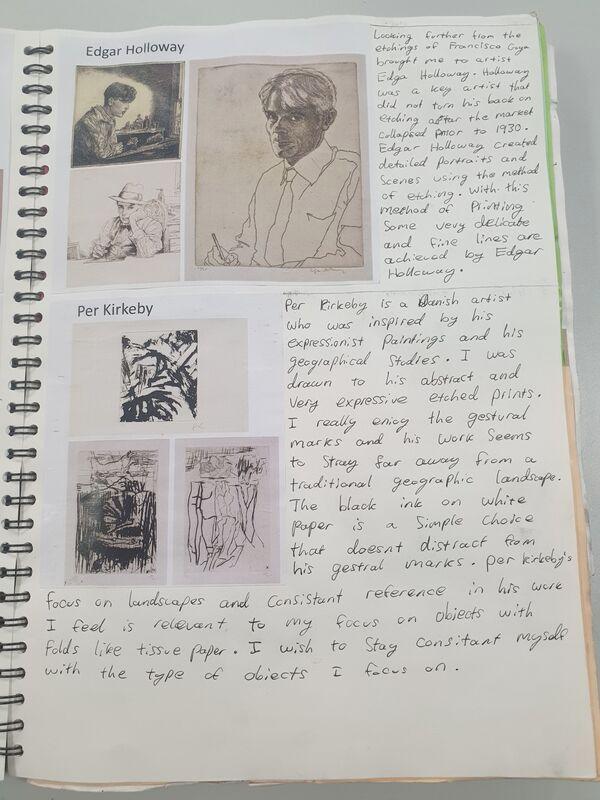 Edgar Holloway
Looking further from the
etchings of Francisco Goya
brought me to artist
Edga Holloway. Holloway
was a key artist that
did not turn his back on
etching after the market
collapsed Prior to 1930.
Edgar Holloway created
detailed Portraits and
Scenes using the method
of etching. With this
method of Printing
Some very delicate
and fine lines are
achieved by Edgar
Holloway.
Per Kirkeby
Per Kirkeby is a Danish artist
who was inspired by his
expressionist Paintings and his
geographical Studies. I was
drawn to his abstract and
very expressive etched prints.
I really enjoy the gestural
marks and his work Seems
to Stray far away from a
traditional geographic landscape.
The black ink on white
Paper is a Simple choice
that doesnt distract from
his gestral marks. Per Kirkeby's
focus on landscapes and Consistant reference in his work
I feel is relevant to my focus on objects with
folds like tissue paper. I wish to Stay Consitant myself
with the type of objects I focus on.